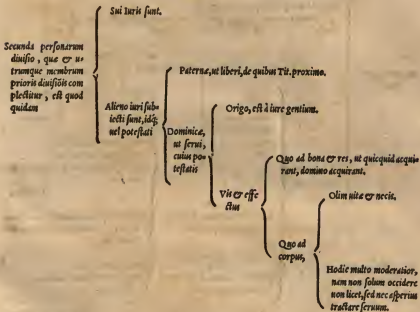 Sui Iuris ſunt.
Secunda perſonarum
diuiſio, quæ & u-
trumque membrum
prioris diuiſiõis com
plectitur, eſt quod
quidam
Alieno iuri ſub-
iecti ſunt, idq;
uel poteſtati
Paternæ, ut liberi, de quibus Tit. proximo.
Dominicæ,
ut ſerui,
cuius po-
teſtatis
Origo, eſt à iure gentium.
Vis & effe
ctus
Quo ad bona & res, ut quicquid acqui-
rant, domino acquirant.
Quo ad
corpus,
Olim uitæ & necis.
Hodie multo moderatior,
nam non ſolum occidere
non licet, ſed nec aſperius
tractare ſeruum.